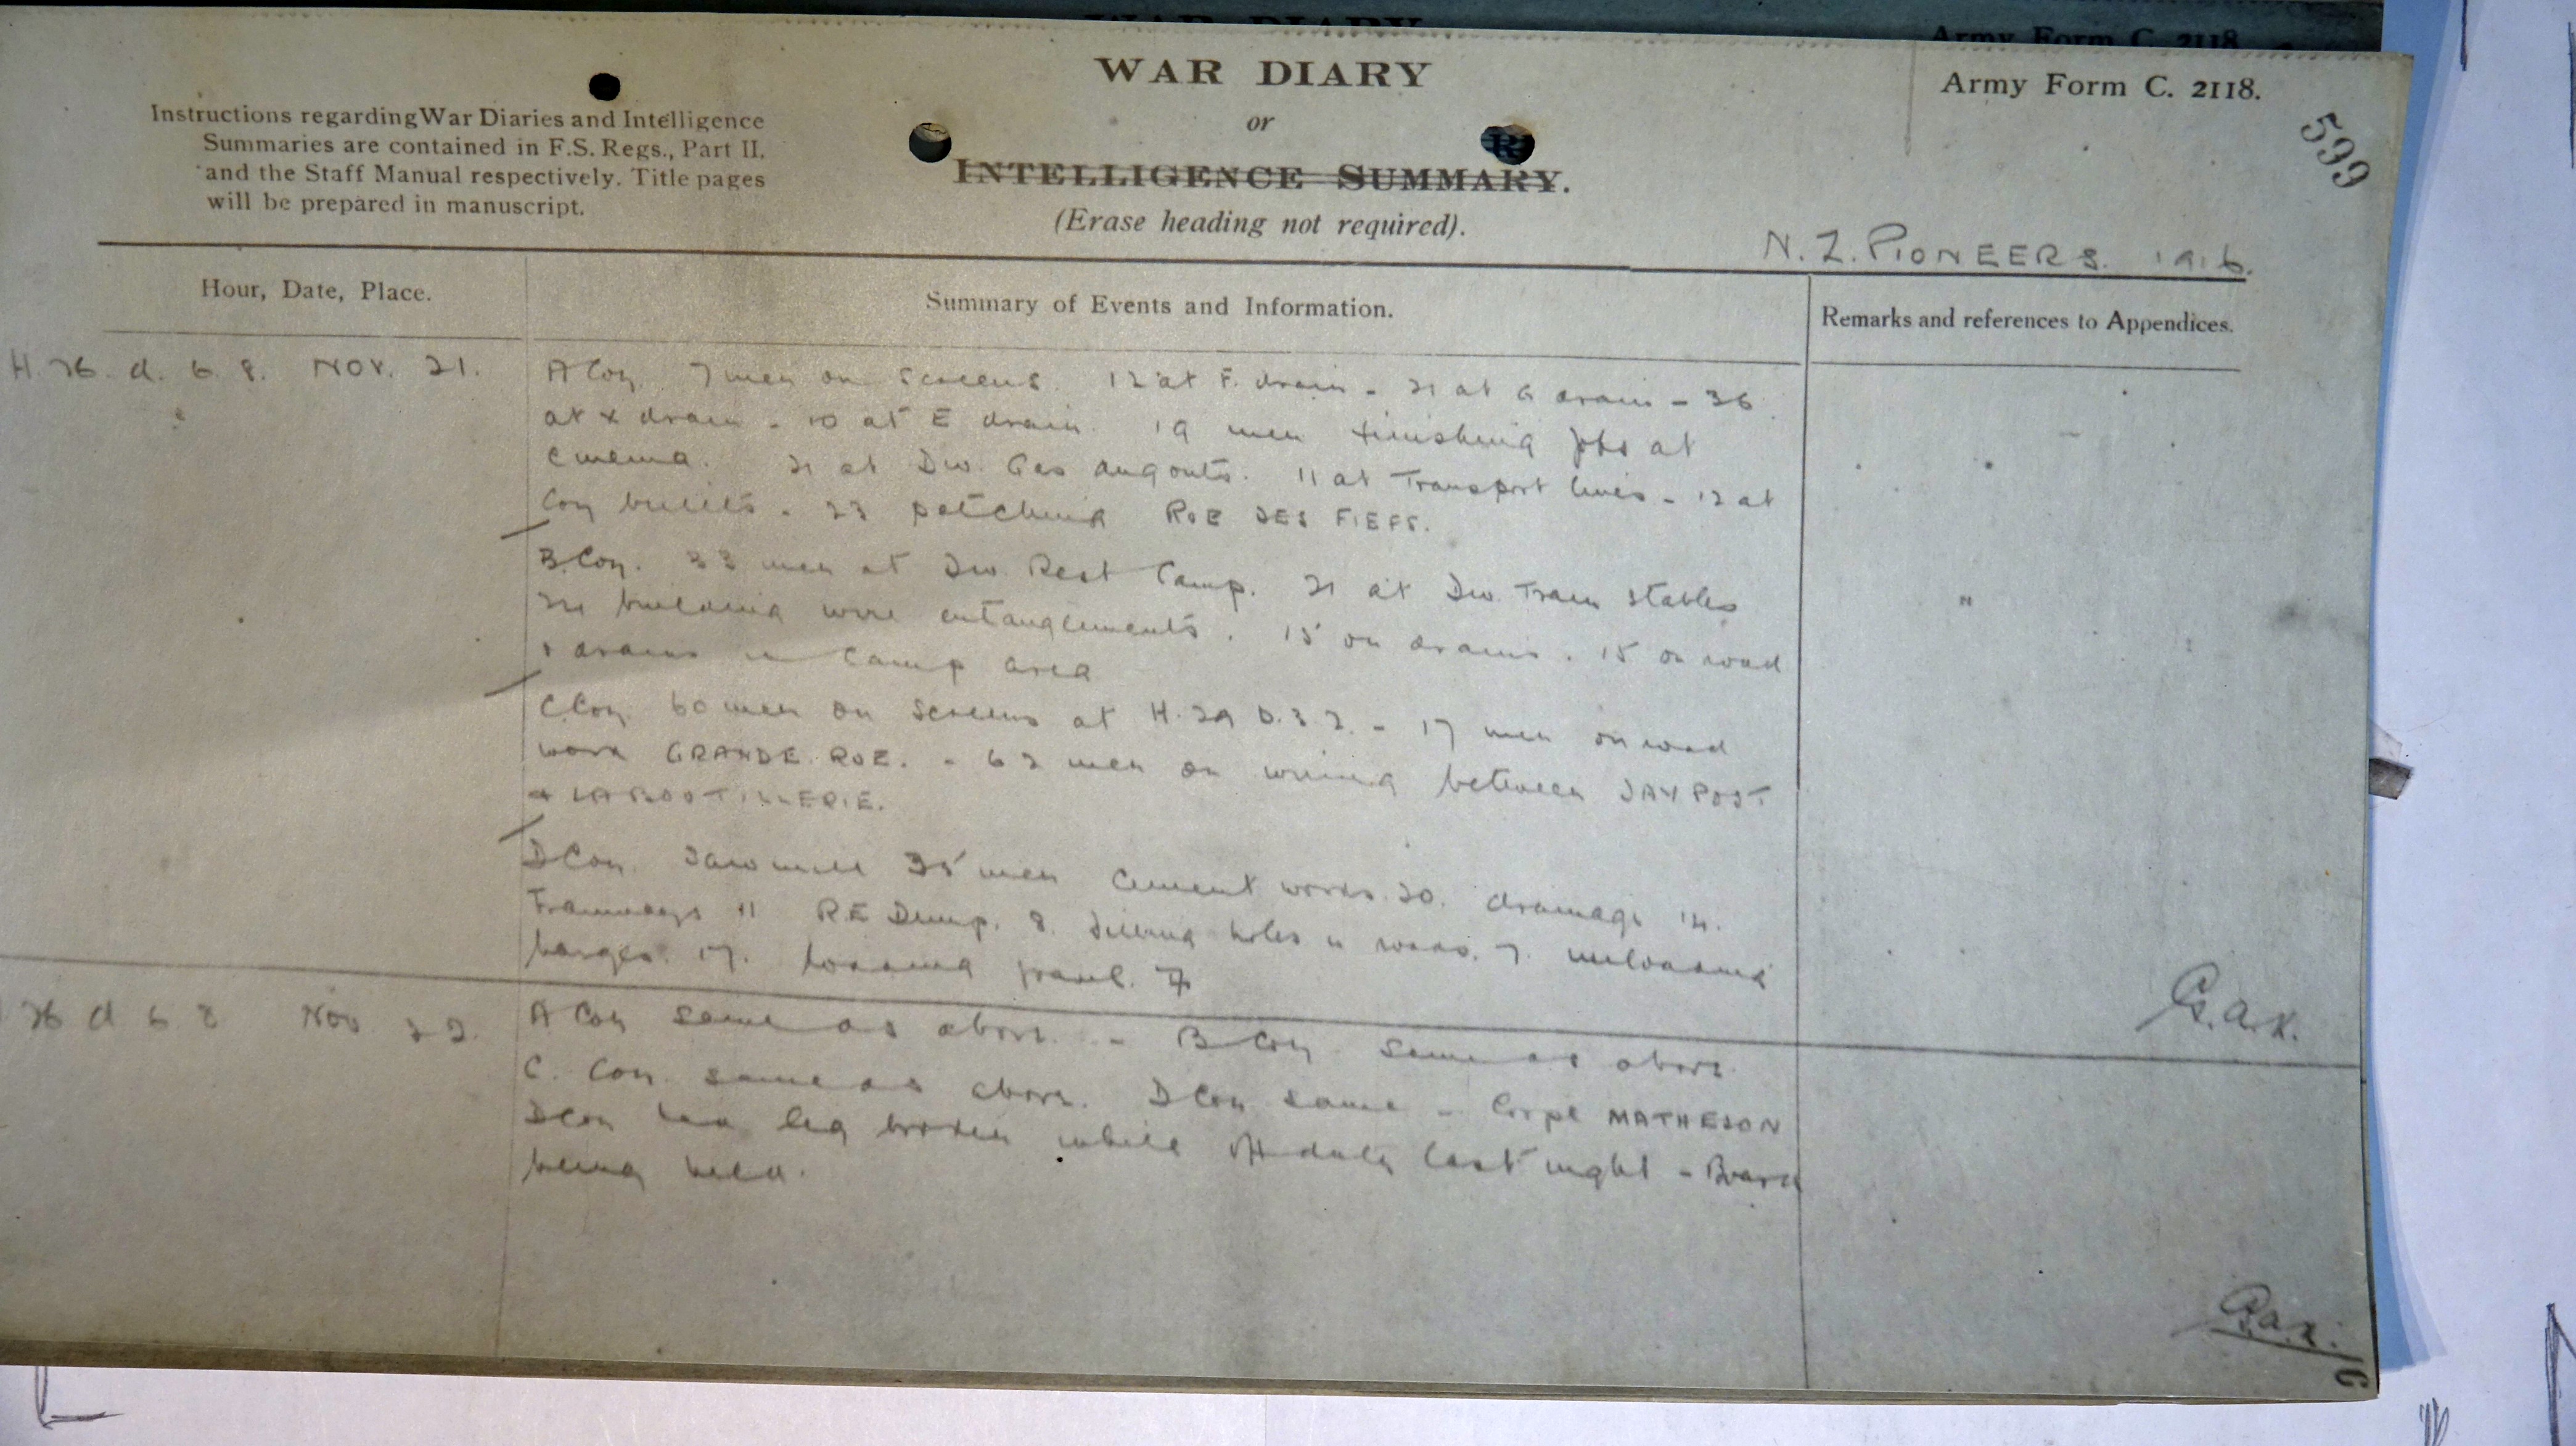 WAR DIARY
Army Form C. 2118.
WAR DIARY
Army Form C. 2118.
599
Instructions regarding War Diaries and Intelligence
Summaries are contained in F.S. Regs., Part II.
and the Staff Manual respectively. Title pages
will be prepared in manuscript.
or
INTELLIGENCE SUMMARY.
(Erase heading not required).
N. Z. PIONEERS. 1916.
Hour, Date, Place.
Summary of Events and Information.
Remarks and references to Appendices.
H. 26. d. 6. 8. Nov. 21.
A Coy. 7 men on screens. 12 at F. drain - 21 at G drain - 36
at X drain - 10 at E drain. 19 men finishing jobs at
cinema. 21 at Div. Gas dugouts. 11 at Transport lines - 12 at
Coy billets. 23 patching RUE DES FIEFS.
B. Coy. 33 men at Div. Rest Camp. 21 at Div. Train stables
building wire entanglements. 15 on drains. 15 on road
& drains in camp area
C. Coy. 60 men on screens at H. 29 D. 3 2. - 17 men on road
work GRANDE RUE. - 62 men on wiring between JAY POST
& LA BOUTILLERIE.
D Coy. Sawmill 35 men Cement works. 20. drainage 14.
Tramways 11 RE Dump. 8. filling holes in roads. 7. unloading
barges. 17. loading gravel. 7
G.A.K.
26 d 6 8 Nov 22.
A Coy same as above. - B Coy same as above
C. Coy. same as above. D Coy same - Corpl MATHESON
D Coy had leg broken while off duty last night - Board
being held.
G.A.K.